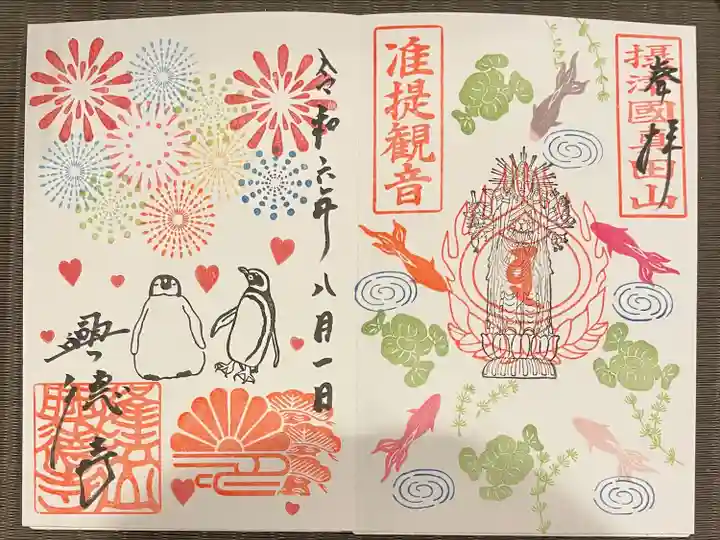 奉拝
摂津國真田山
准提観音
令和六年八月一日
興徳寺